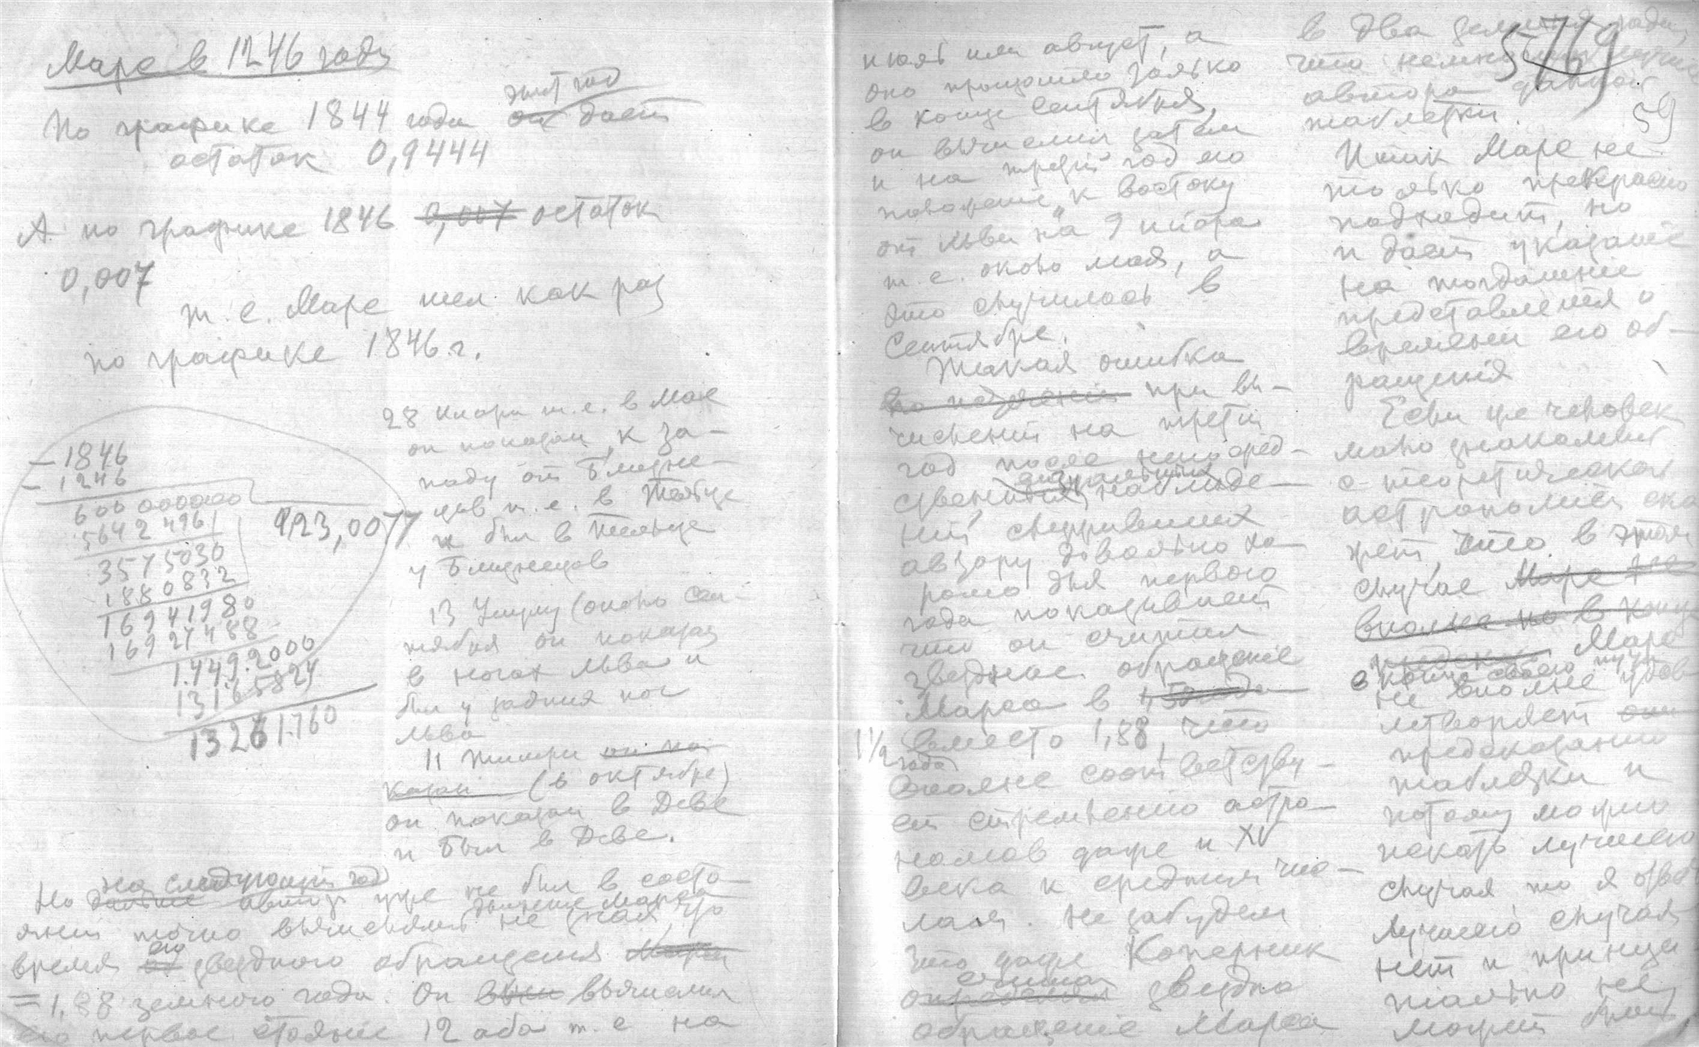 Марс в 1246 году
этот год
По графике 1844 года он дает
остаток 0,9444
А по графике 1846 0,007 остаток
0,007
т. е. Марс шел как раз
по графике 1846 г.
1846
1246
600 0000000
5642 4961
3575030
1880832
16941980
16927488
1.449.2000
13165824
13261760
923,0077
28 т. е. в мае
он показан к за-
паду от Близне-
цов т. е. в Тельце
и был в Тельце
у Близнецов
13 (около сен-
тября он показан
в ногах Льва и
был у задних ног
Льва
11 он по-
казан (в октябре)
он показан в Деве
и был в Деве.
на следующий год
Но дальше автор уже не был в состо-
янии точно вычислять не зная что
время его звездного обращения Марса
= 1,88 земного года. Он вычислил
его первое стояние 12 аба т. е на
июль или август, а
оно произошло только
в конце сентября,
он вычислил затем
и на третий год его
к востоку
от Льва на 9
т. е. около мая, а
это случилось в
Сентябре.
Такая ошибка
при вы-
числении на третий
год после непосред-
ственных наблюде-
ний
автору довольно хо-
рошо для первого
года показывает
что он считал
звездное обращение
Марса в 1,50 года
1 1/2 года
вместо 1,88, что
вполне соответству-
ет стремлению астро-
номов даже и XV
века к средним чис-
лам. Не забудем
что даже Коперник
считал
определял звездное
обращение Марса
в два земных года,
что
автора данной
таблетки.
5719
59
Итак Марс не
только прекрасно
подходит, но
и дает указание
на тогдашние
представления о
времени его об-
ращения
Если же человек
мало знакомый
с теоретической
астрономией ска-
жет, что в этом
случае Марс не
вполне но в конце
Марс
в конце своего пути
не вполне удов-
летворяет
предсказанию
таблетки и
потому можно
искать лучшего
случая, то я
лучшего случая
нет и
только не
может быть